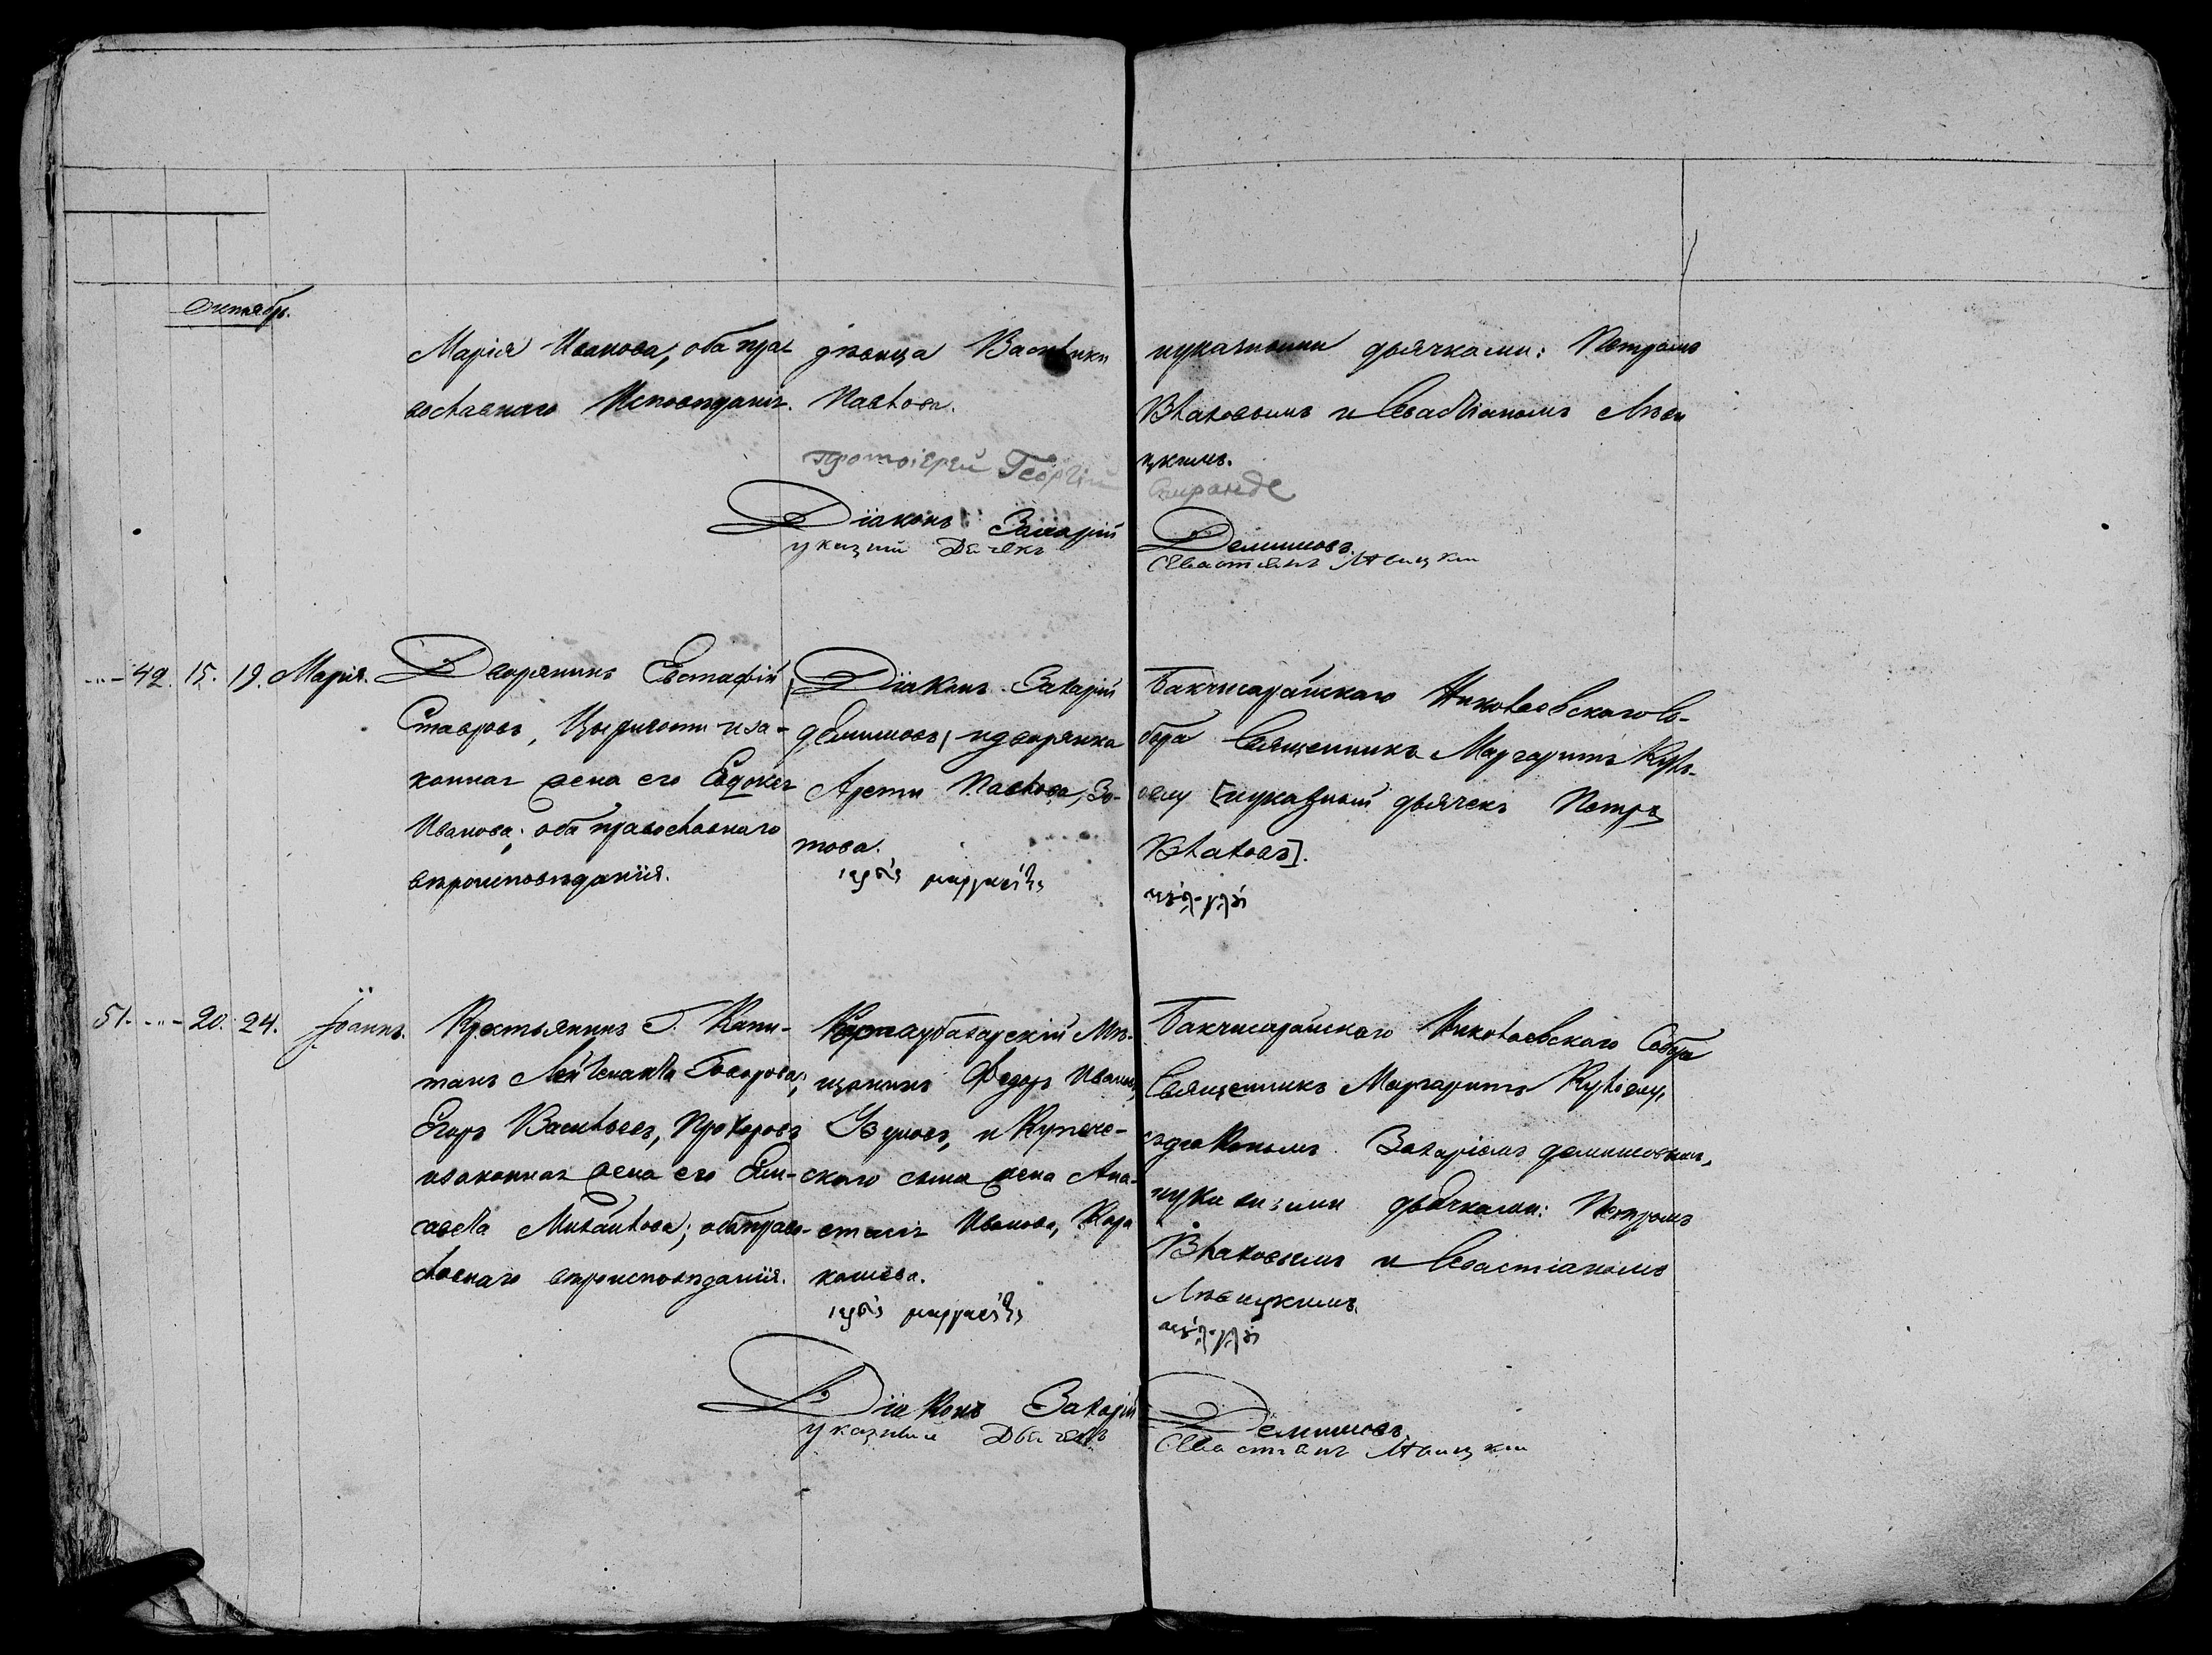 Октябрь.
Марія Иванова, оба пра-
вославнаго Исповѣданія.
дѣвица Василики
Павлова.
Протоіерей Георгій
Діаконъ Захарій
указный Дьячекъ
иуказными дьячками: Петромъ
Влаховымъ и Севастіаномъ Лѣви
цкимъ.
Спиранде
Демишовъ.
Севастіянъ Лѣвицкій
-"- 42. 15. 19. Марія.
Дворянинъ Евстафій
Ставровъ, и за-
конная жена его Евдокія
Иванова; оба православнаго
вѣроисповѣданія.
Діаконъ Захарій
Демишовъ, идворянка
Арети Павлова, Зо-
това.
Бакчисарайскаго Николаевскаго Со-
бора Священникъ Маргаритъ Кул-
оглу [иуказный дьячекъ Петръ
Влаховъ].
51. -"- 20. 24. Іоаннъ.
Крестьянинъ Г. Капи-
танъ Лейтенанта Говорова;
Егоръ Васильевъ, Прохоровъ
изаконная жена его Ели-
савета Михайлова; обаправо-
славнаго вѣроисповѣданія.
Карасубазарскій Мѣ-
щанинъ Федоръ Ивановъ,
и Купече-
скаго сына жена Ана-
стасія Иванова, Кара
кошева.
Бакчисарайскаго Николаевскаго Собора
Священникъ Маргаритъ Кулоглу,
съдіакономъ Захаріемъ Демишовымъ,
иуказными дьячками: Петромъ
Влаховымъ и Севастіаномъ
Лѣвицкимъ.
Діаконъ Захарій
указный Дьячекъ
Демишовъ.
Севастіянъ Лѣвицкій